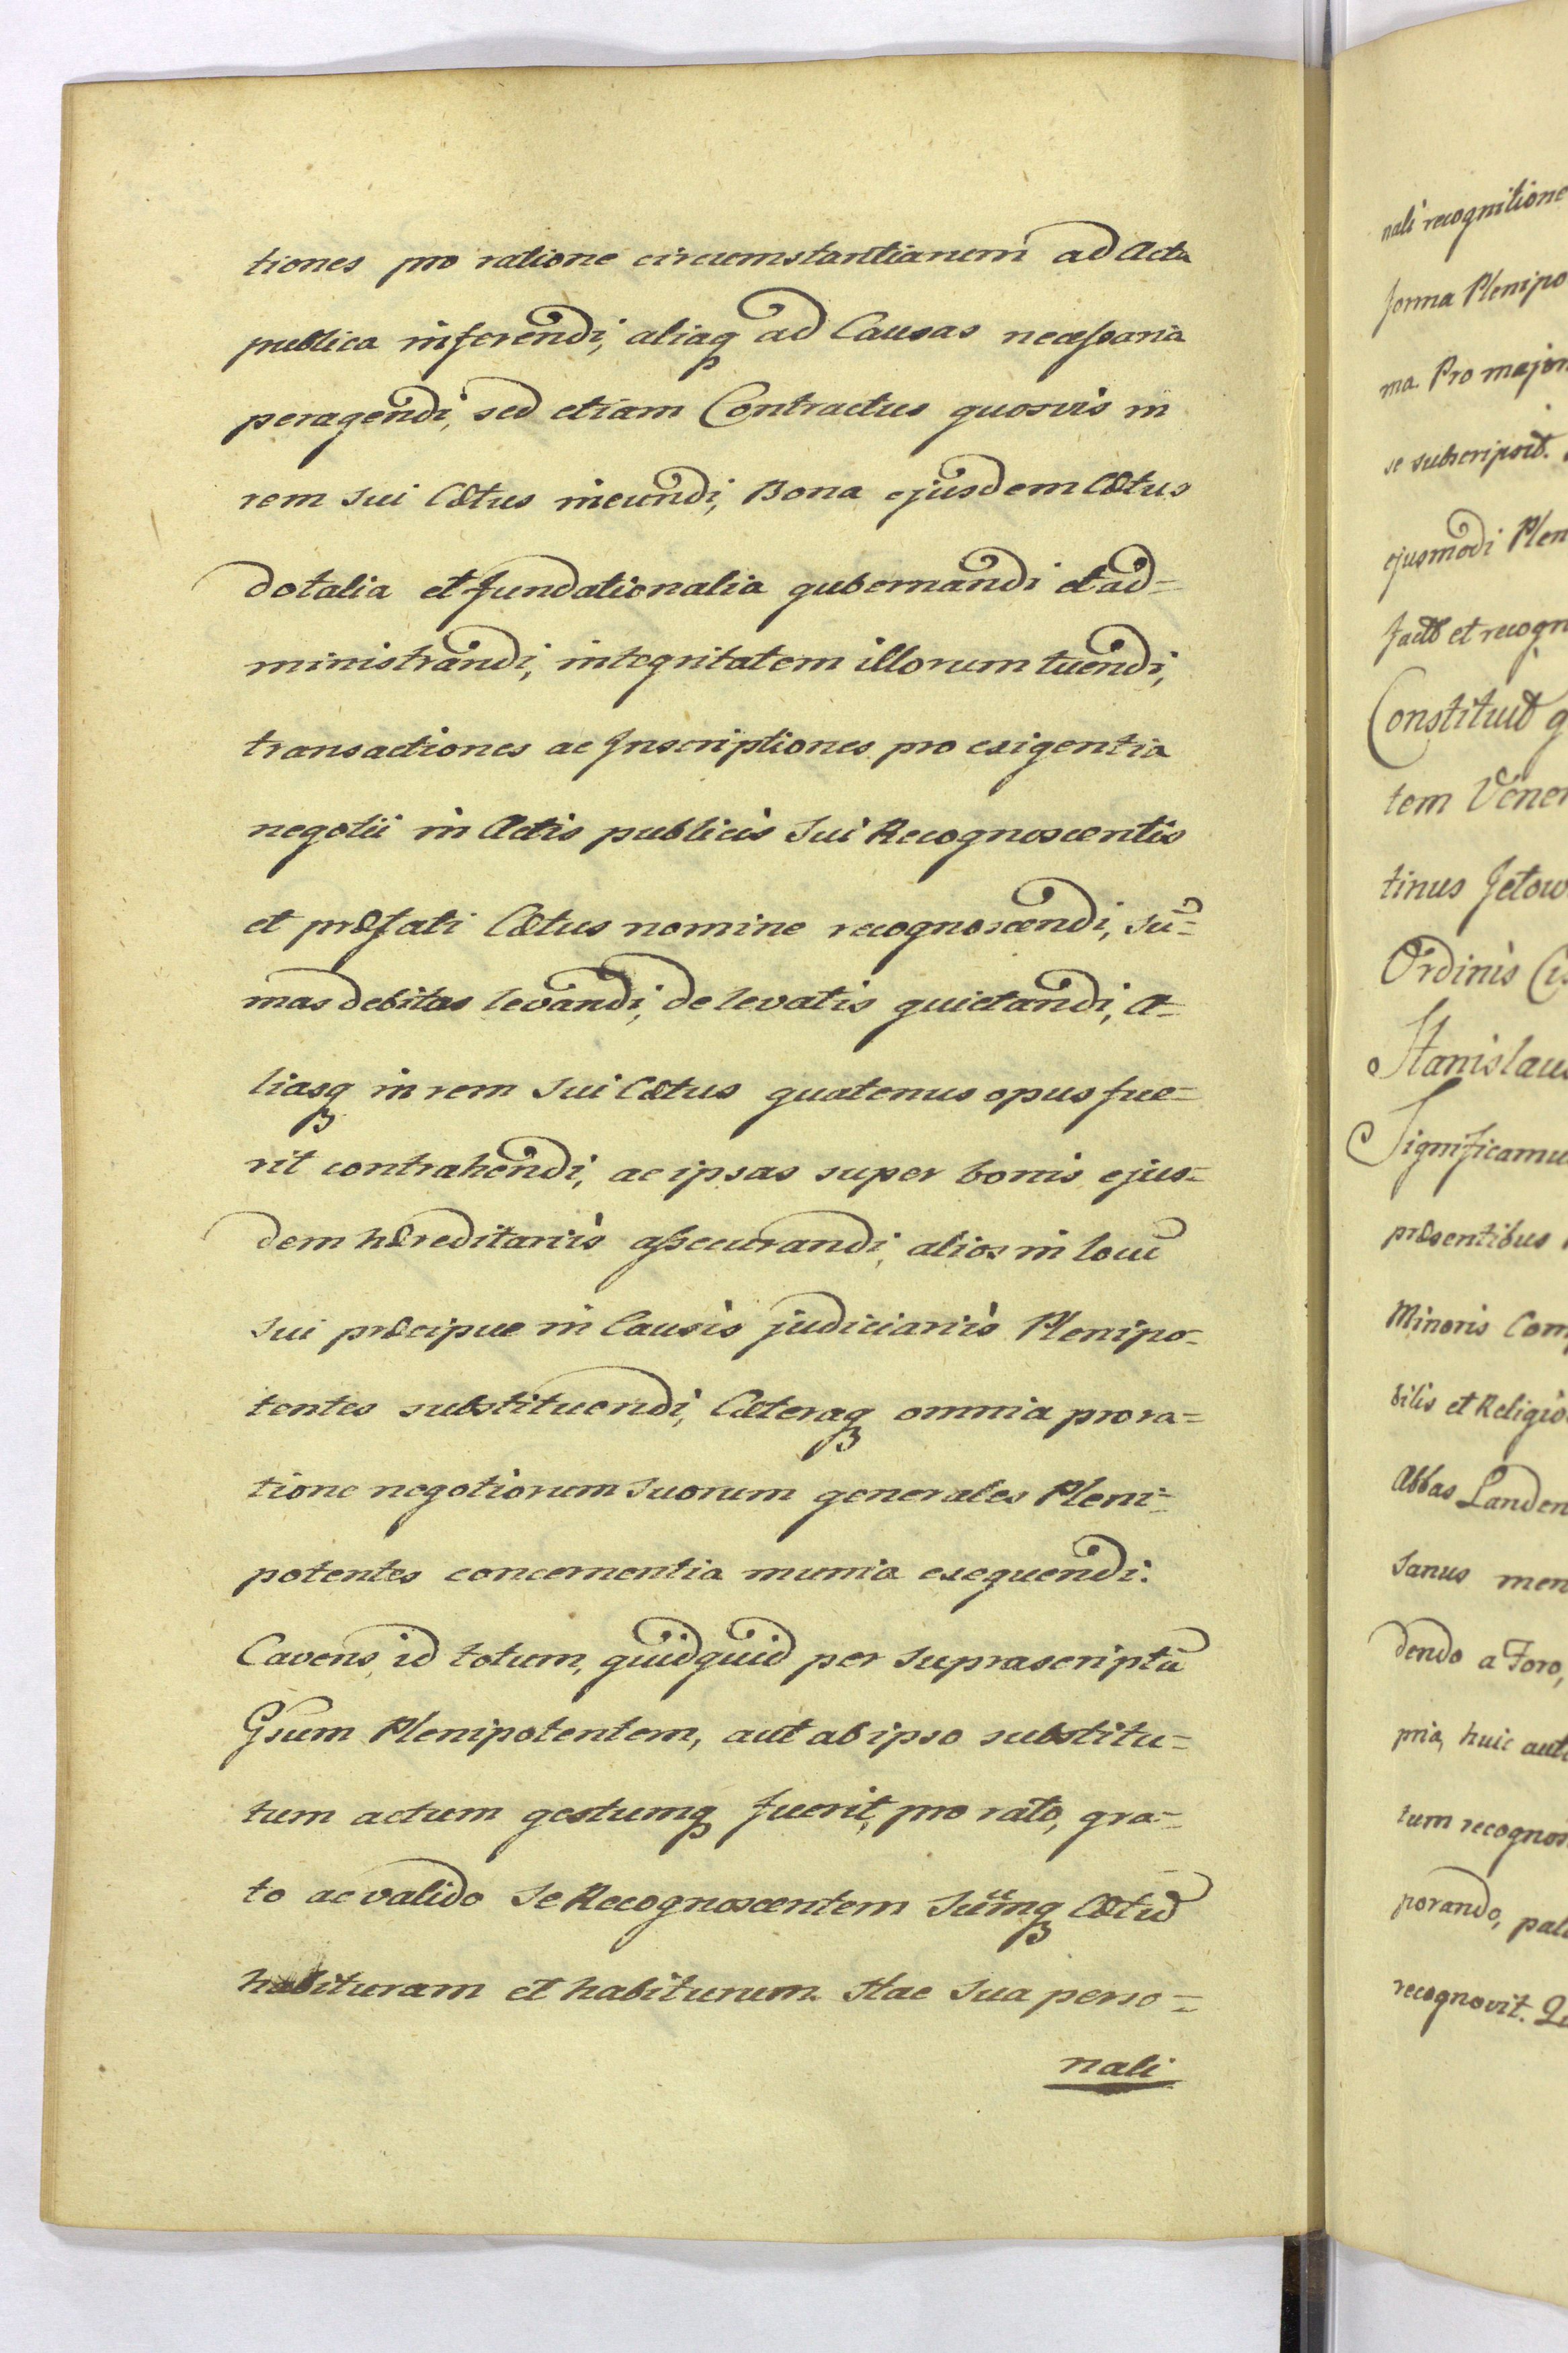 tiones pro ratione circumstantiarum ad Acta
publica inferendi, aliaq ad Causas necessaria
peragendi, sed etiam Contractus quosvis in
rem sui Cœtus ineundi, Bona ejusdem Cœtus
dotalia et fundationalia gubernandi et ad=
ministrandi, integritatem illorum tuendi,
transactiones ac Inscriptiones pro exigentia
negotii in Actis publicis Sui Recognoscentis
et præfati Cœtus nomine recognoscendi, Su=
mas debitas levandi, de levatis quietandi, A=
liasq in rem Sui Cœtus quatenus opus fue=
rit contrahendi, ac ipsas super bonis ejus=
dem hæreditariis assecurandi, alios in locū
sui præcipue in Causis judiciariis Plenipo=
tentes substituendi, Cæteraq omnia pro ra=
tione negotiorum Suorum generales Pleni=
potentes concernentia munia exequendi.
Cavens id totum, quidquid per Suprascriptū
Gsum Plenipotentem, aut ab ipso substitu=
tum actum gestumq fuerit, pro rato, gra=
to ac valido Se Recognoscentem Suumq Cœtū
habituram et habiturum. Hac Sua perso=
nali
nali recognitione
forma Plenipo
ma. Pro majori
se subscripsit.
ejusmodi Plen
facta et recogn
Constituit q
tem Vener
tinus Jetow
Ordinis Cis
Stanislaus
Significamu
præsentibus
Minoris Com
bilis et Religio
Abbas Landen
Sanus men
dendo a Foro,
pria, huic aut
tum recognos
porando, pala
recognovit. Qu